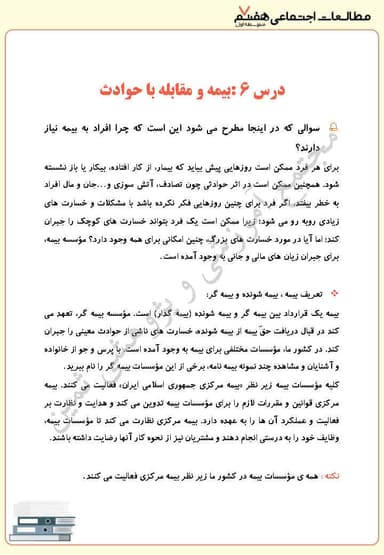 مطالعات اجتماعی هفتم
متوسطه اول
درس ۶ :بیمه و مقابله با حوادث
سوالی که در اینجا مطرح می شود این است که چرا افراد به بیمه نیاز
دارند؟
برای هر فرد ممکن است روزهایی پیش بیاید که بیمار، از کار افتاده، بیکار یا باز نشسته
شود. همچنین ممکن است در اثر حوادثی چون تصادف، آتش سوزی و...جان و مال افراد
به خطر بیفتد. اگر فرد برای چنین روزهایی فکر نکرده باشد با مشکلات و خسارت های
زیادی روبه رو می شود؛ زیرا ممکن است یک فرد بتواند خسارت های کوچک را جبران
کند؛ اما آیا در مورد خسارت های بزرگ، چنین امکانی برای همه وجود دارد؟ مؤسسه بیمه،
برای جبران زیان های مالی و جانی به وجود آمده است.
تعریف بیمه ، بیمه شونده و بیمه گر:
بیمه یک قرارداد بین بیمه گر و بیمه شونده (بیمه گذار) است. مؤسسه بیمه گر، تعهد می
کند در قبال دریافت حقّ بیمه از بیمه شونده، خسارت های ناشی از حوادث معینی را جبران
کند. در کشور ما، مؤسسات مختلفی برای بیمه به وجود آمده است. با پرس و جو از خانواده
و آشنایان و مشاهده چند نمونه بیمه نامه، برخی از این مؤسسات بیمه گر را نام ببرید.
کلیه مؤسسات بیمه زیر نظر «بیمه مرکزی جمهوری اسلامی ایران» فعالیت می کنند. بیمه
مرکزی قوانین و مقررات لازم را برای مؤسسات بیمه تدوین می کند و هدایت و نظارت بر
فعالیت و عملکرد آن ها را به عهده دارد. بیمه مرکزی نظارت می کند تا مؤسسات بیمه،
وظایف خود را به درستی انجام دهند و مشتریان نیز از نحوه کار آنها رضایت داشته باشند.
نکته : همه ی مؤسسات بیمه در کشور ما زیر نظر بیمه مرکزی فعالیت می کنند.